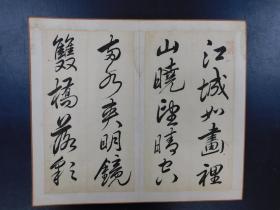 江城如畫裡
山曉望晴空
兩水夾明鏡
雙橋落彩